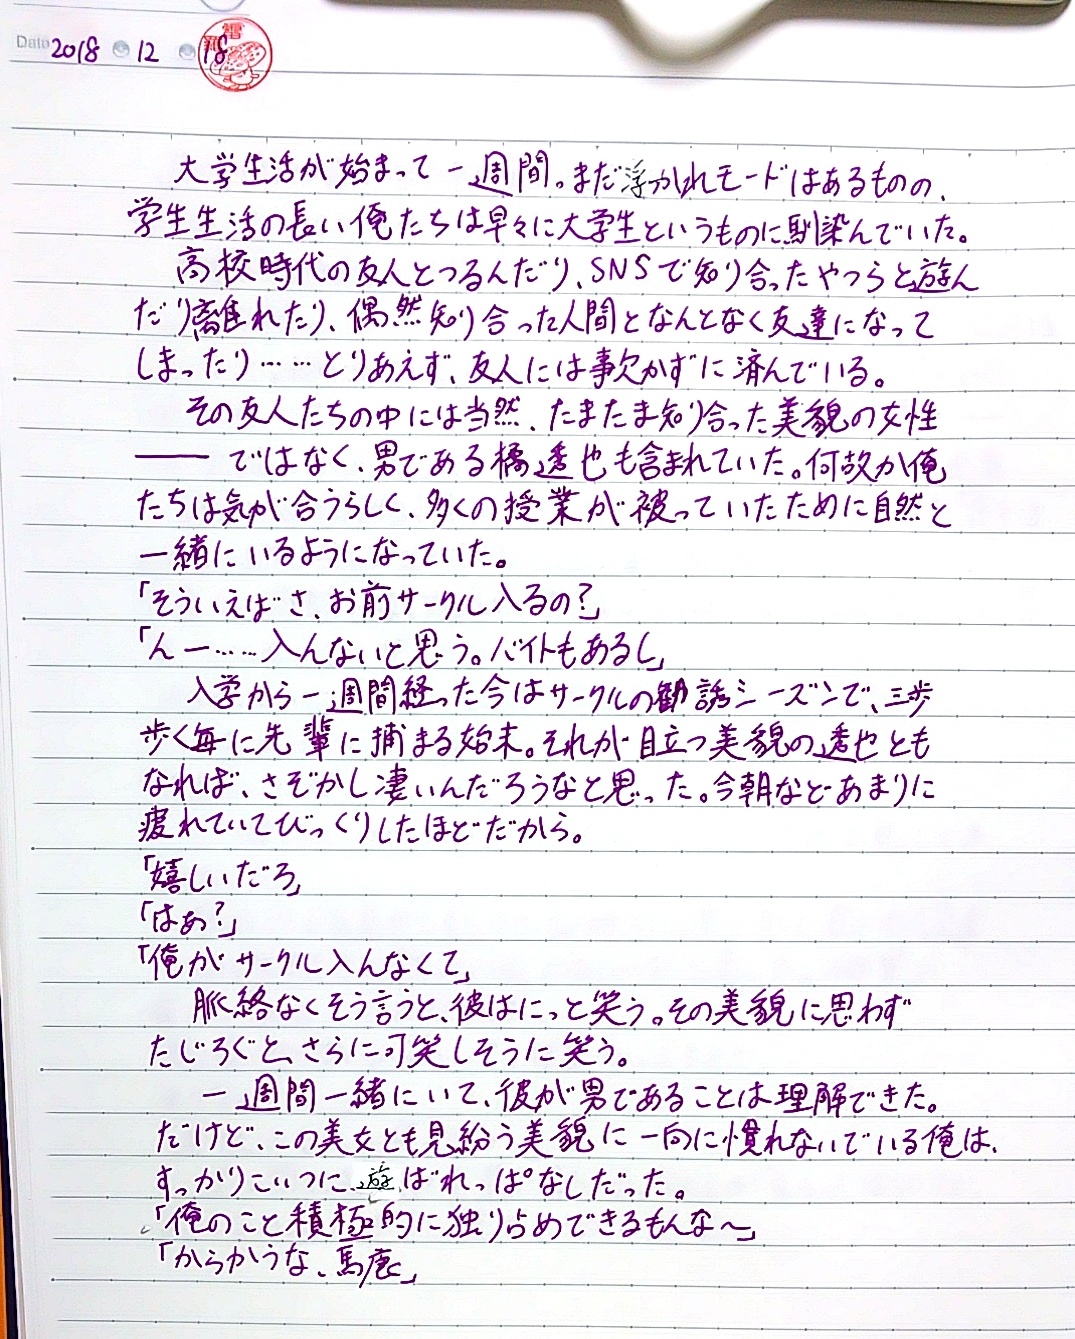 Date 2018 12 18
大学生活が始まって一週間。まだ浮かれモードはあるものの、
学生生活の長い俺たちは早々に大学生というものに馴染んでいた。
高校時代の友人とつるんだり、SNSで知り合ったやつらと遊ん
だり離れたり、偶然知り合った人間となんとなく友達になって
しまったり……とりあえず、友人には事欠かずに済んでいる。
その友人たちの中には当然、たまたま知り合った美貌の女性
――ではなく、男である橘透也も含まれていた。何故か俺
たちは気が合うらしく、多くの授業が被っていたために自然と
一緒にいるようになっていた。
「そういえばさ、お前サークル入るの?」
「んー……入んないと思う。バイトもあるし」
入学から一週間経った今はサークルの勧誘シーズンで、三歩
歩く毎に先輩に捕まる始末。それが目立つ美貌の透也とも
なれば、さぞかし凄いんだろうなと思った。今朝などあまりに
疲れていてびっくりしたほどだから。
「嬉しいだろ」
「はあ?」
「俺がサークル入んなくて」
脈絡なくそう言うと、彼はにっと笑う。その美貌に思わず
たじろぐと、さらに可笑しそうに笑う。
一週間一緒にいて、彼が男であることは理解できた。
だけど、この美女とも見紛う美貌に一向に慣れないでいる俺は、
すっかりこいつに遊ばれっぱなしだった。
「俺のこと積極的に独り占めできるもんな〜」
「からかうな、馬鹿」